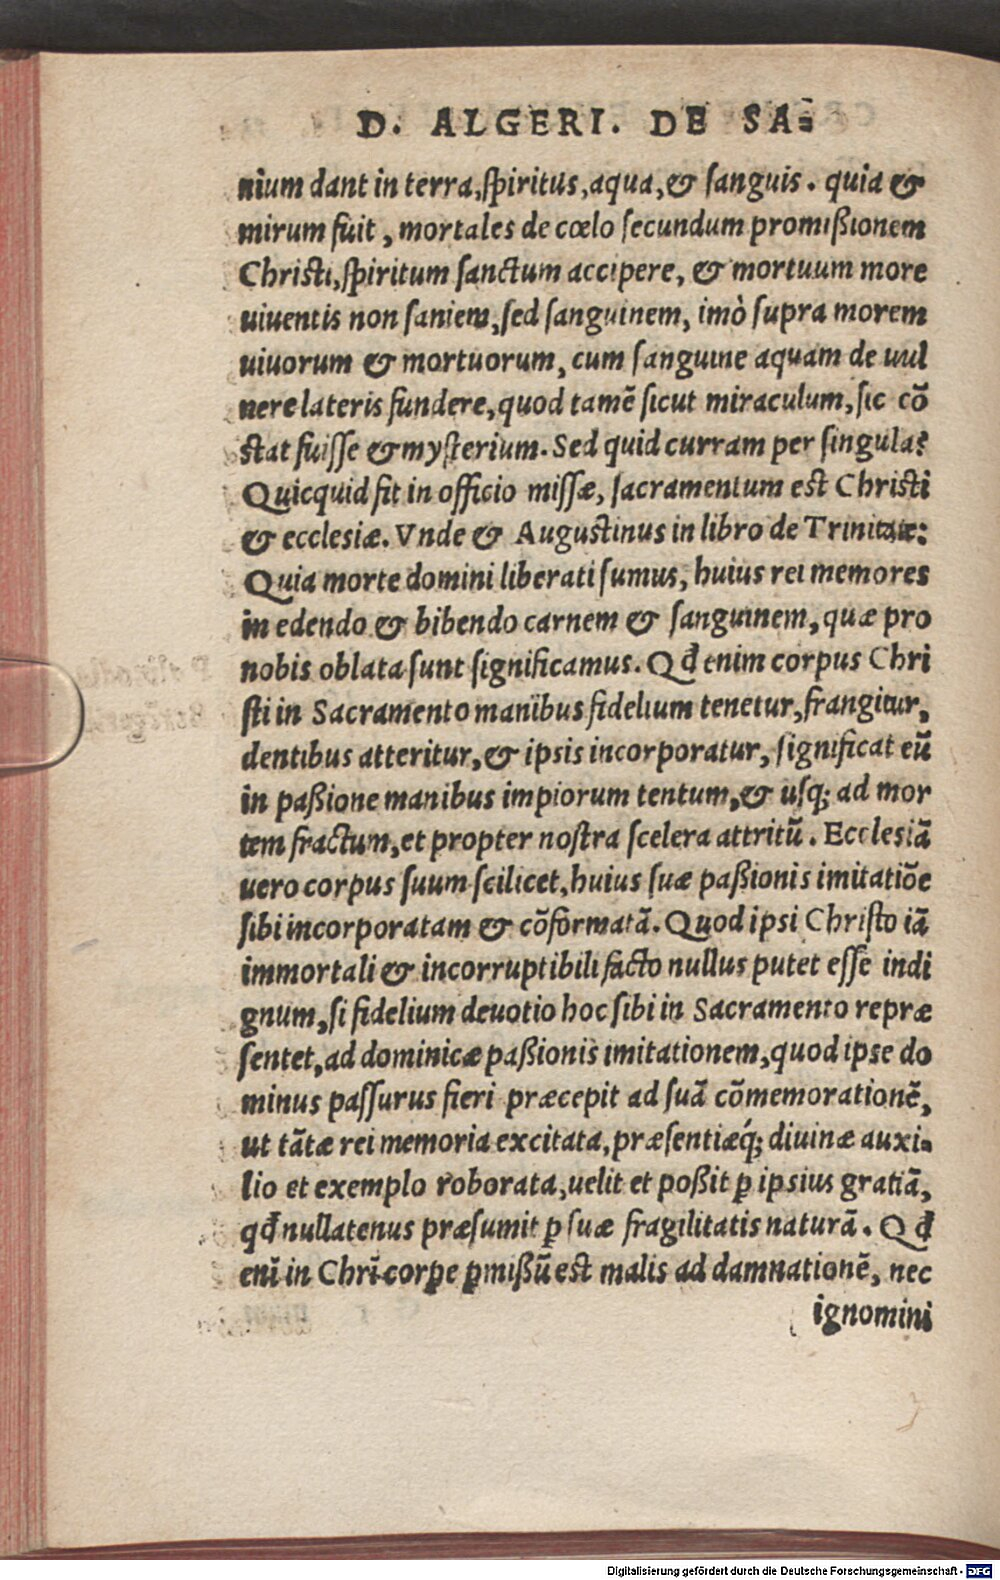 D. ALGERI. DE SA⸗
nium dant in terra, ſpiritus, aqua, & ſanguis. quia &
mirum fuit, mortales de cœlo ſecundum promißionem
Chriſti, ſpiritum ſanctum accipere, & mortuum more
uiuentis non ſaniem, ſed ſanguinem, imò ſupra morem
uiuorum & mortuorum, cum ſanguine aquam de uul
nere lateris fundere, quod tamē ſicut miraculum, ſic cō
ſtat fuiſſe & myſterium. Sed quid curram per ſingula?
Quicquid fit in officio miſſæ, ſacramentum eſt Chriſti
& eccleſiæ. Vnde & Auguſtinus in libro de Trinitate:
Quia morte domini liberati ſumus, huius rei memores
in edendo & bibendo carnem & ſanguinem, quæ pro
nobis oblata ſunt ſignificamus. Qđ enim corpus Chri
ſti in Sacramento manibus fidelium tenetur, frangitur,
dentibus atteritur, & ipsis incorporatur, ſignificat eū
in paßione manibus impiorum tentum, & uſq; ad mor
tem fractum, et propter noſtra ſcelera attritū. Eccleſiā
uero corpus ſuum ſcilicet, huius ſuæ paßionis imitatiōe
ſibi incorporatam & cōformatā. Quod ipsi Chriſto iā
immortali & incorruptibili facto nullus putet eſſe indi
gnum, ſi fidelium deuotio hoc ſibi in Sacramento repræ
ſentet, ad dominicæ paßionis imitationem, quod ipse do
minus paſſurus fieri præcepit ad ſuā cōmemorationē,
ut tātæ rei memoria excitata, præſentiæq́; diuinæ auxi⸗
lio et exemplo roborata, uelit et poßit ꝑ ipsius gratiā,
qđ nullatenus præſumit ꝑ ſuæ fragilitatis naturā. Qđ
enī in Chrī corpe ꝑmißū eſt malis ad damnationē, nec
ignomini
Digitalisierung gefördert durch die Deutsche Forschungsgemeinschaft - DFG